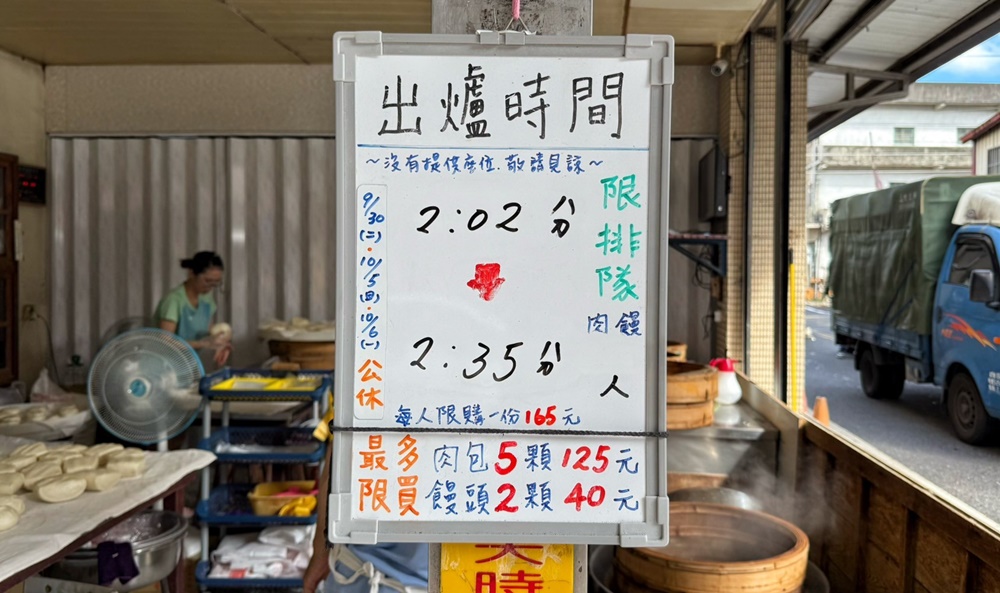 出爐時間
~沒有提供座位.敬請見諒~
9/30(二)·10/5(日)·10/6(一)公休
2:02分
2:35分
限排隊
肉饅
人
每人限購一份165元
最多限買
肉包5顆125元
饅頭2顆40元
時